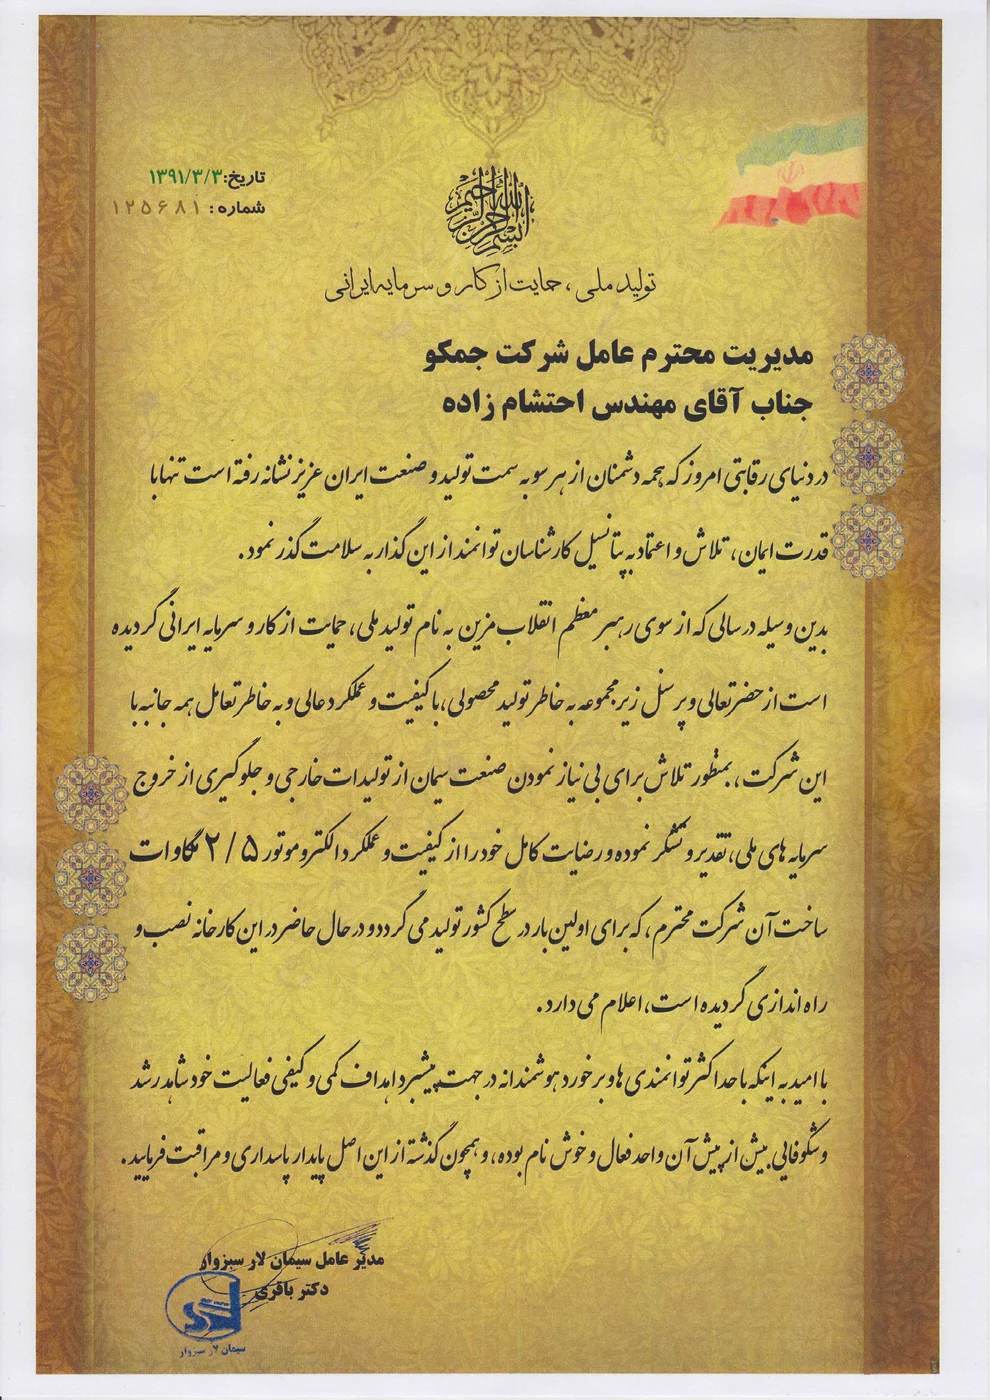 بسم الله الرحمن الرحیم
تاریخ: ۱۳۹۱/۳/۳
شماره: ۱۲۵۶۸۱
تولید ملی، حمایت از کار و سرمایه ایرانی
مدیریت محترم عامل شرکت جمکو
جناب آقای مهندس احتشام زاده
در دنیای رقابتی امروز که همه دشمنان از هر سو به سمت تولید و صنعت ایران عزیز نشانه رفته است تنها با
قدرت ایمان، تلاش و اعتماد به پتانسیل کارشناسان توانمند از این گذار به سلامت گذر نمود.
بدین وسیله در سالی که از سوی رهبر معظم انقلاب مزین به نام تولید ملی، حمایت از کار و سرمایه ایرانی گردیده
است از حضرتعالی و پرسنل زیرمجموعه به خاطر تولید محصولی، با کیفیت و عملکرد عالی و به خاطر تعامل همه جانبه با
این شرکت، بمنظور تلاش برای بی نیاز نمودن صنعت سیمان از تولیدات خارجی و جلوگیری از خروج
سرمایه های ملی، تقدیر و تشکر نموده و رضایت کامل خود را از کیفیت و عملکرد الکتروموتور ۲/۵ مگاوات
ساخت آن شرکت محترم، که برای اولین بار در سطح کشور تولید می گردد و در حال حاضر در این کارخانه نصب و
راه اندازی گردیده است، اعلام می دارد.
با امید به اینکه با حداکثر توانمندی ها و برخورد هوشمندانه در جهت پیشبرد اهداف کمی و کیفی فعالیت خود شاهد رشد
و شکوفایی بیش از پیش آن واحد فعال و خوش نام بوده، و همچون گذشته از این اصل پایدار پاسداری و مراقبت فرمایید.
مدیر عامل سیمان لار سبزوار
دکتر باقری
سیمان لار سبزوار